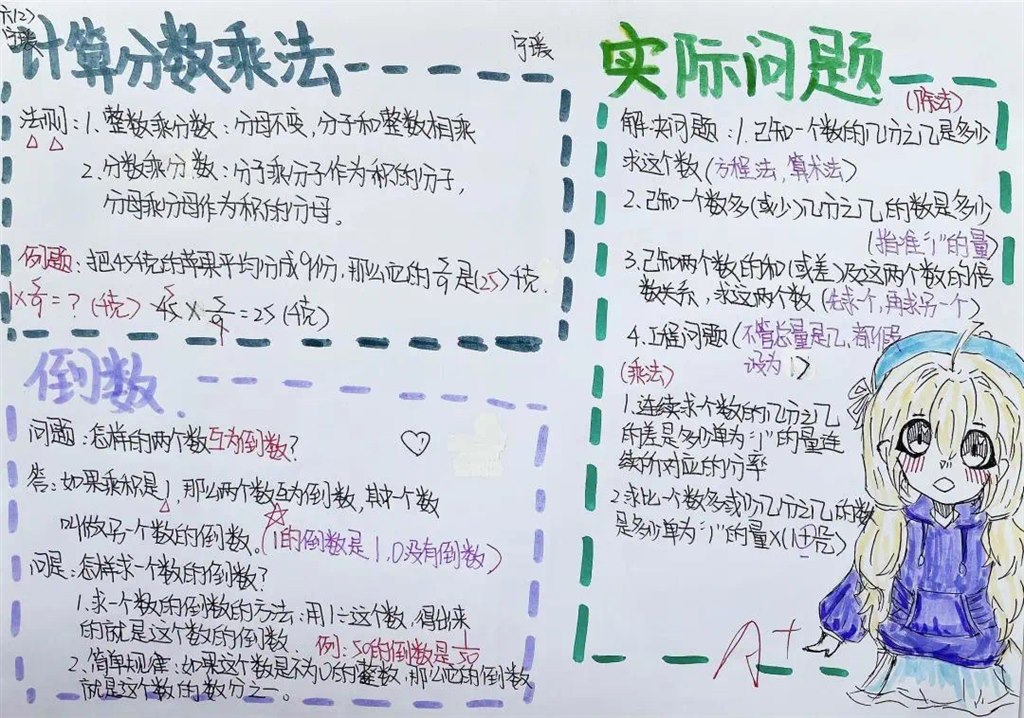 六(2)
宇瑗
计算分数乘法
宇瑗
法则:1、整数乘分数:分母不变,分子和整数相乘
2.分数乘分数:分子乘分子作为积的分子,
分母乘分母作为积的分母。
例题:把45千克的苹果平均分成9份,那么它的5/9是(25)千克.
1×5/9=?(千克) 45×5/9=25(千克)
倒数
问题:怎样的两个数互为倒数?
答:如果乘积是1,那么两个数互为倒数,其中个数
叫做另一个数的倒数。(1的倒数是1,0没有倒数)
问是:怎样求一个数的倒数?
1.求一个数的倒数的方法:用1÷这个数,得出来
的就是这个数的倒数. 例:50的倒数是1/50
2.简单规律:如果这个数是不为0的整数,那么它的倒数
就是这个数的数分之一。
实际问题
(除法)
解决问题:1.已知一个数的几分之几是多少
求这个数(方程法,算术法)
2.已知一个数多(或少)几分之几的数是多少
(指准“1”的量)
3.已知两个数的和(或差)及这两个数的倍
数关系,求这两个数(先求个,再求另一个)
4.工程问题(不管总量是几,都假
设为1)
(乘法)
1.连续求个数的几分之几
的差是多少单为“1”的量连
续所对应的分率
2求比一个数多或少几分之几的数
是多少单为“1”的量×(1±几/几)
A+